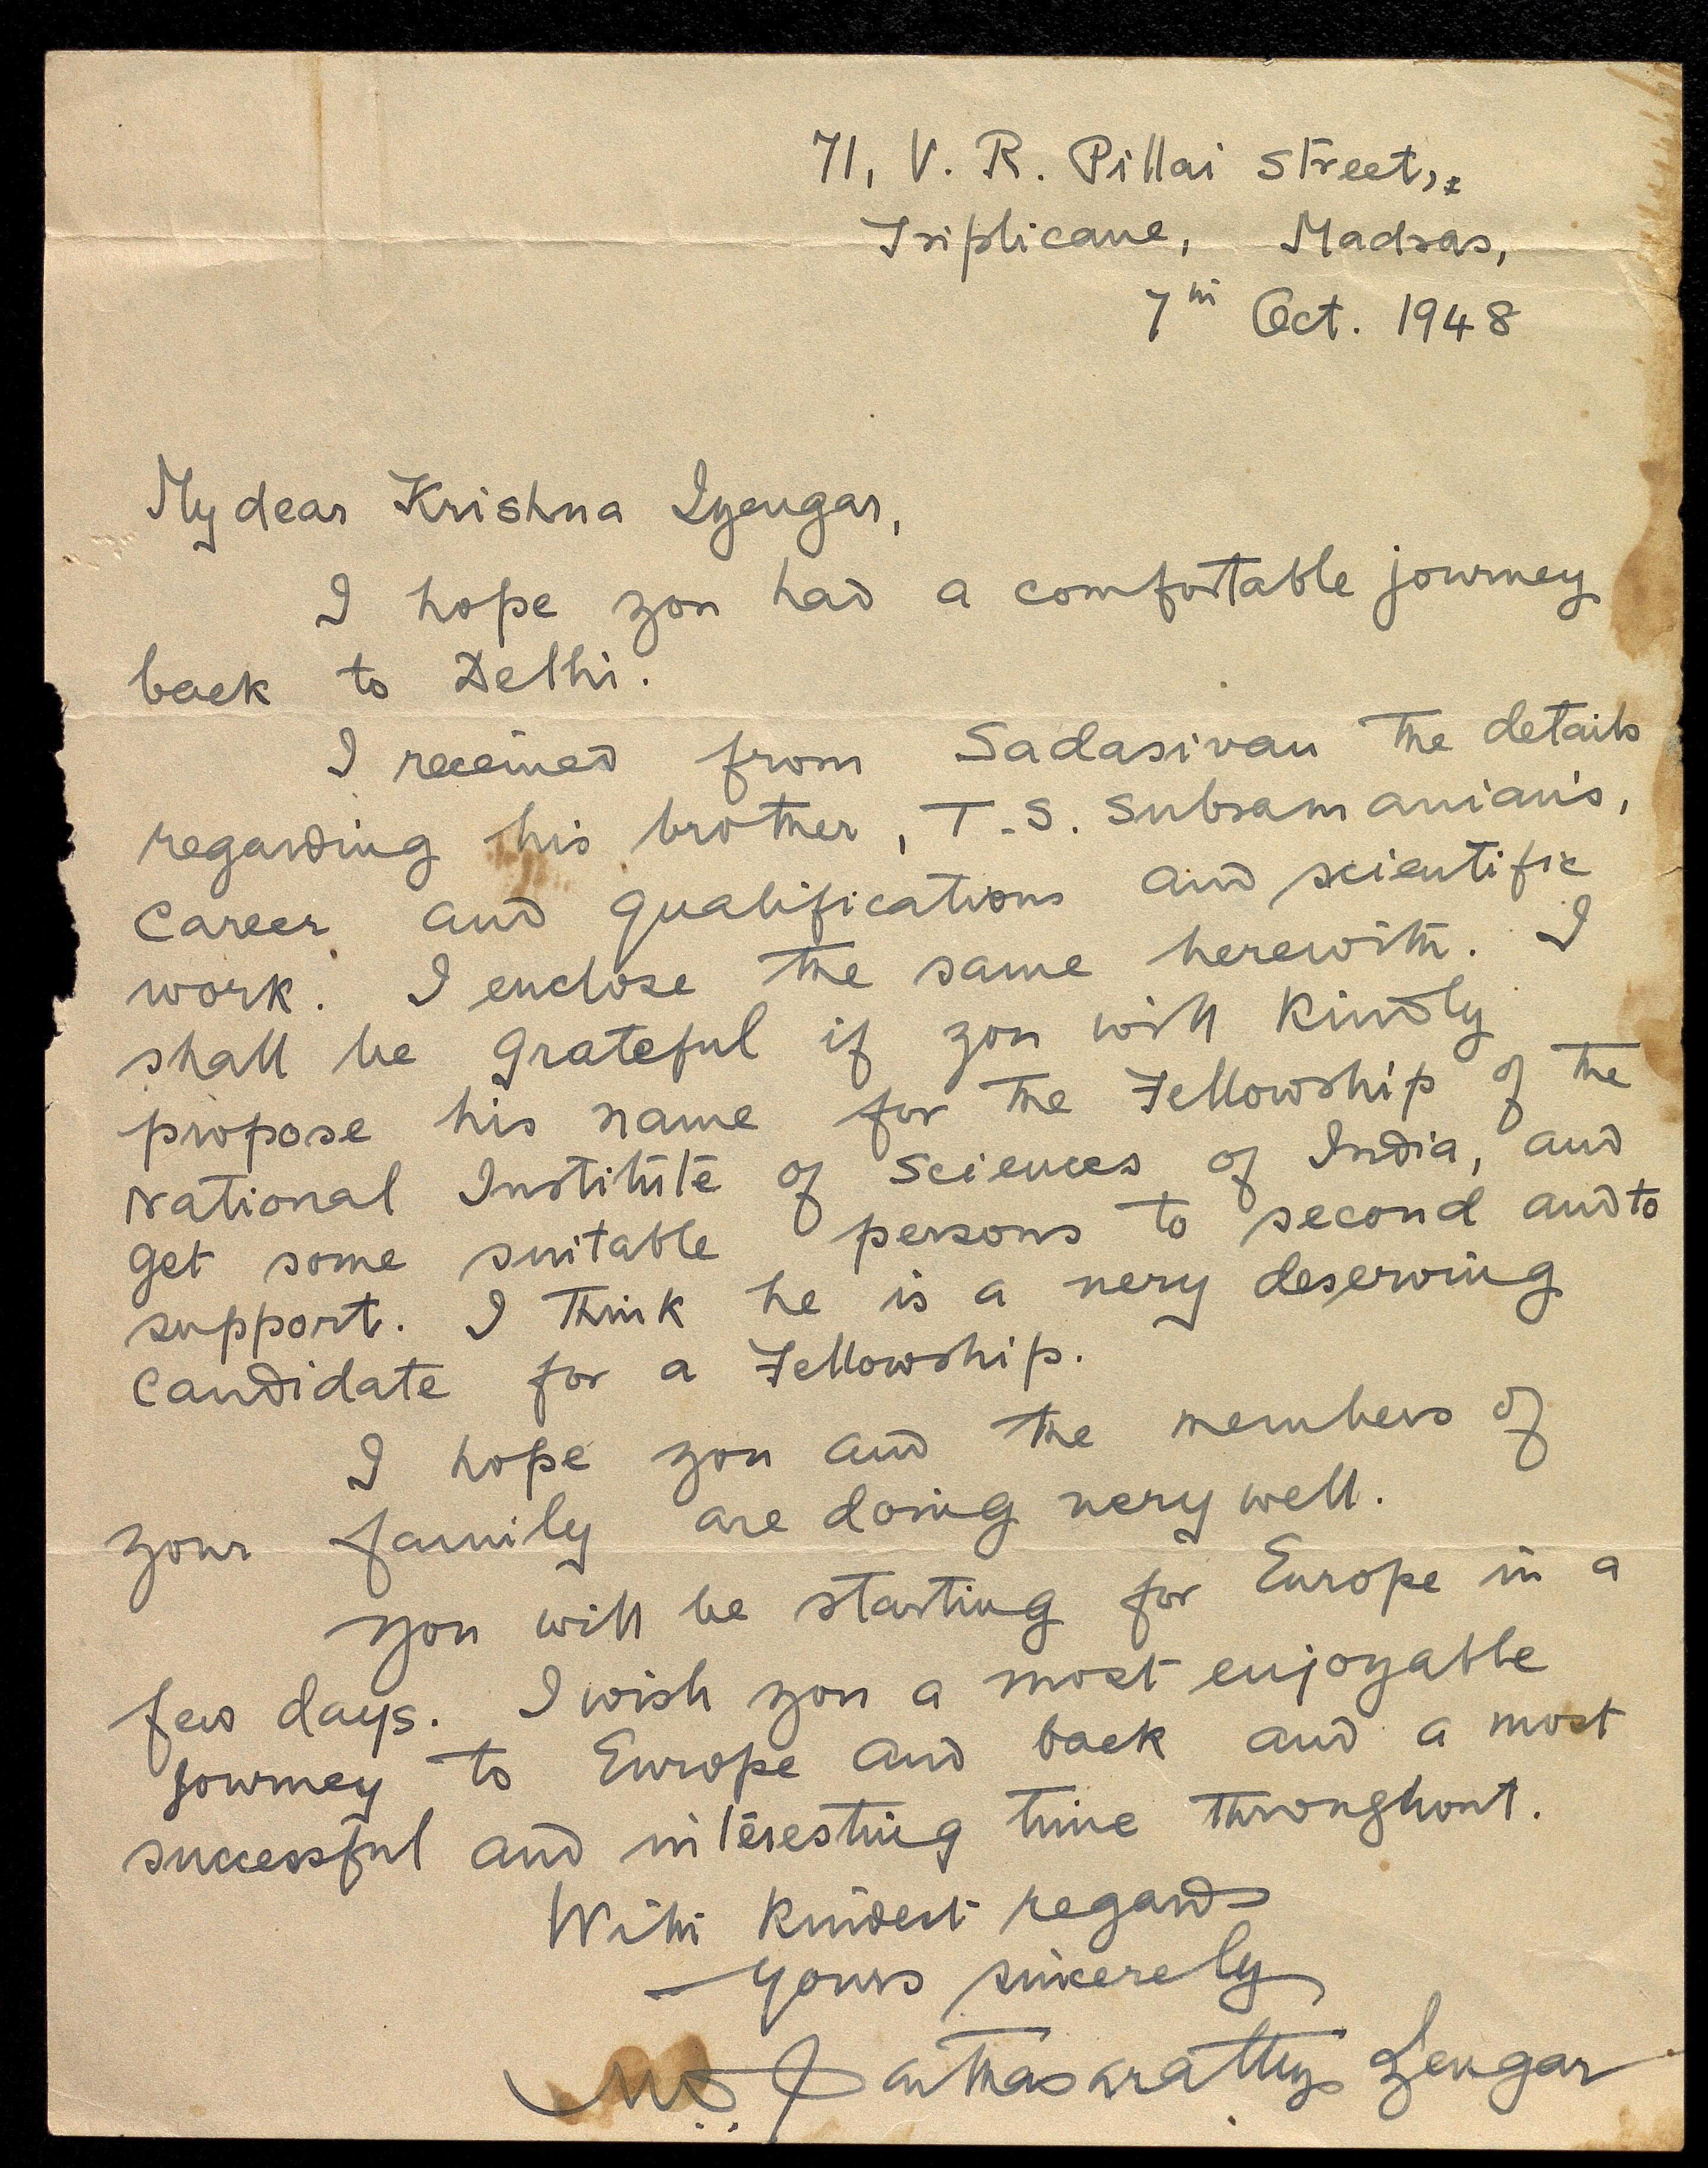 71, V. R. Pillai Street,
Triplicane, Madras,
7th Oct. 1948
My dear Krishna Iyengar,
I hope you had a comfortable journey
back to Delhi.
I received from Sadasivan the details
regarding his brother, T. S. Subramanian's,
Career and qualifications and scientific
work. I enclose the same herewith. I
shall be grateful if you will kindly
propose his name for the Fellowship of the
National Institute of Sciences of India, and
get some suitable persons to second and to
support. I think he is a very deserving
candidate for a Fellowship.
I hope you and the members of
your family are doing very well.
You will be starting for Europe in a
few days. I wish you a most enjoyable
journey to Europe and back and a most
successful and interesting time throughout.
With kindest regards
Yours sincerely
Parthasarathy Iyengar